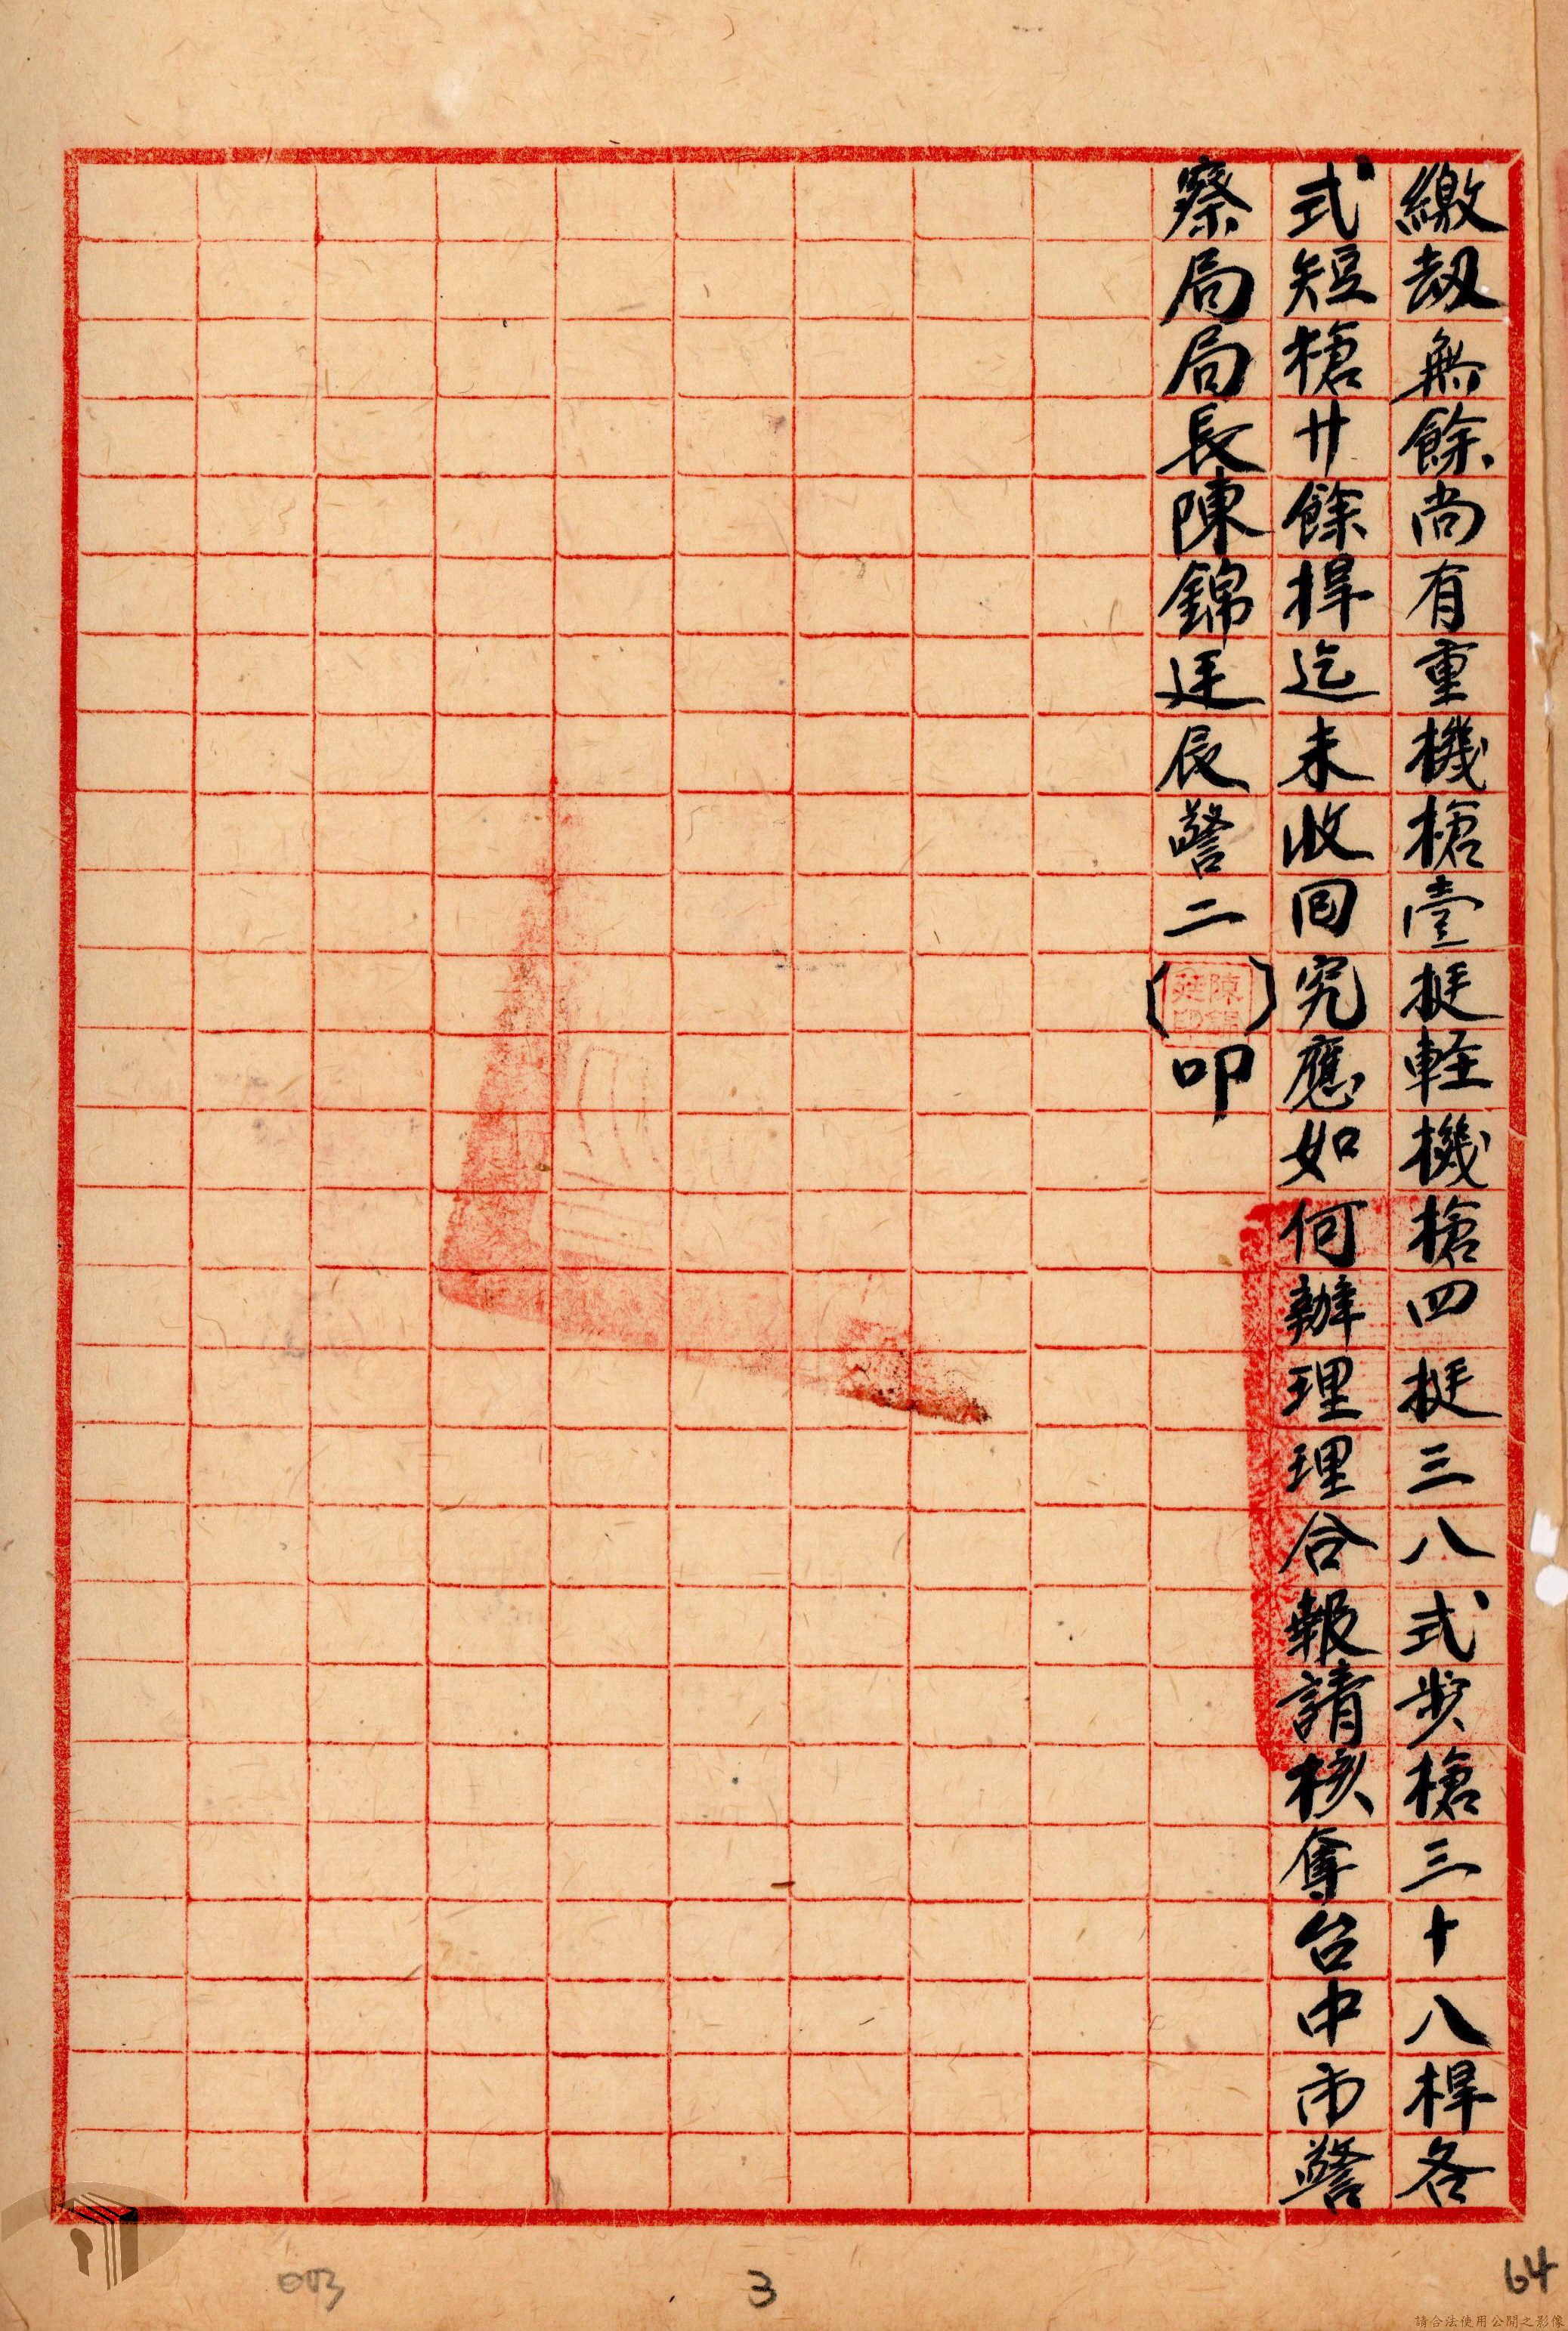 繳刼無餘尚有重機槍壹挺軽機槍四挺三八式步槍三十八桿各
式短槍廿餘捍迄未收回究應如何辦理理合報請核奪台中市警
察局局長陳錦廷辰警二(陳錦廷印)叩
003
3
64
請合法使用公開之影像